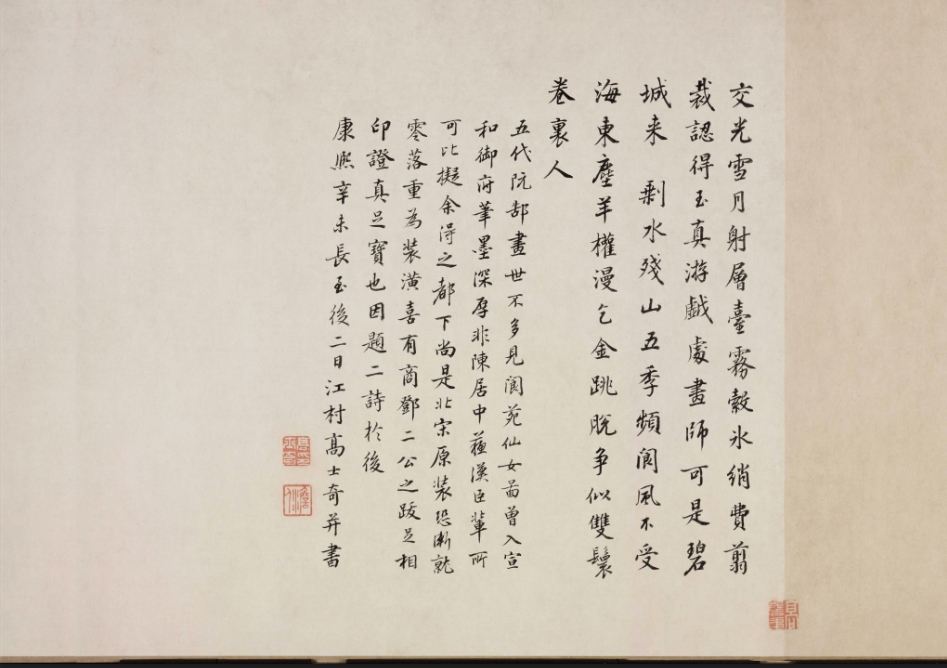 交光雪月射層臺霧縠氷綃費翦
裁認得玉真游戲處畫師可是碧
城来　剩水殘山五季頻閬風不受
海東塵羊權漫乞金跳脫争似雙鬟
卷裏人
五代阮郜畫世不多見閬苑仙女啚曾入宣
和御府筆墨深厚非陳居中蘇漢臣輩所
可比擬余得之都下尚是北宋原装恐漸就
零落重為装潢喜有商鄧二公之跋足相
印證真足寶也因題二詩於後
康熙辛未長至後二日江村髙士奇并書